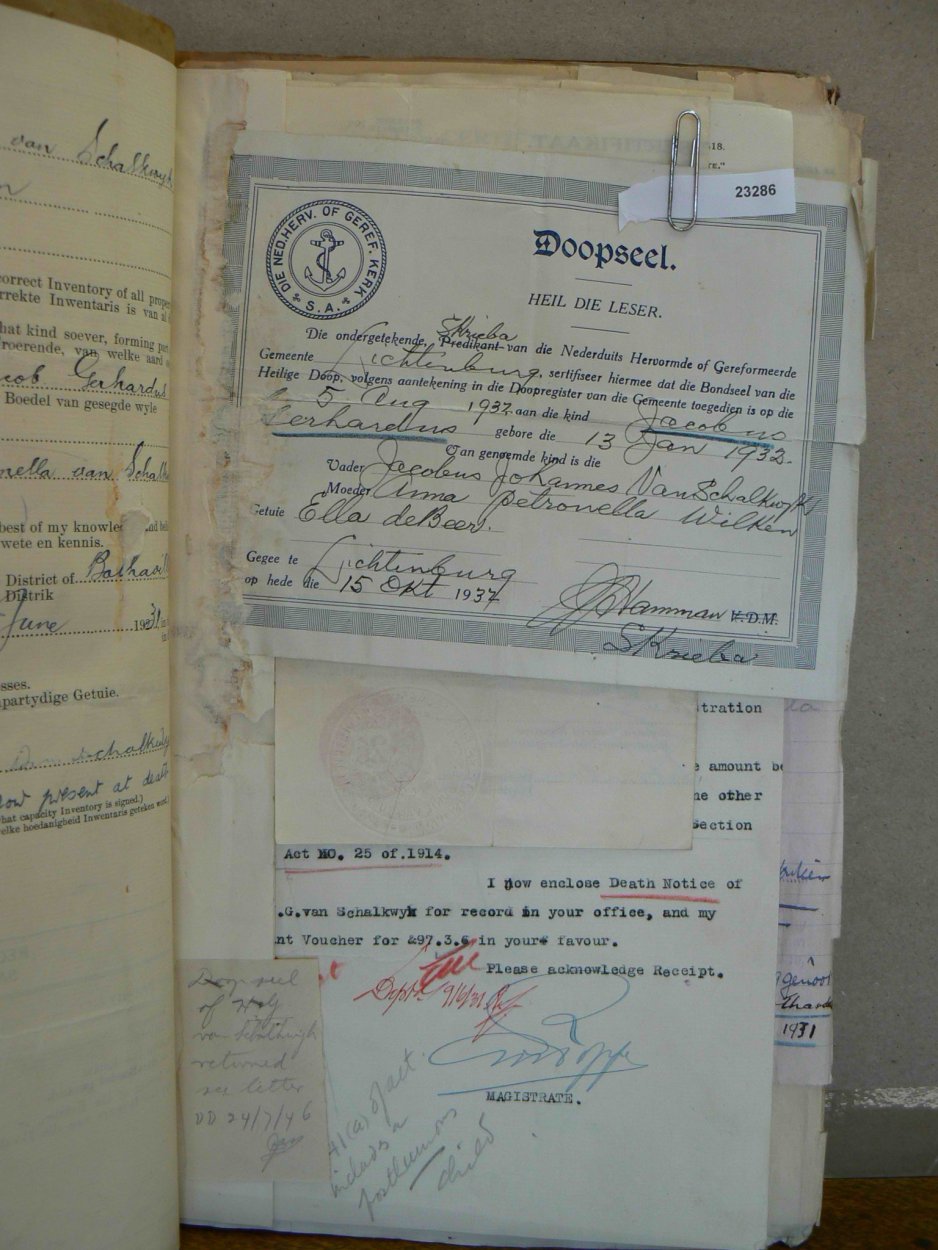 van Schalkwyk
correct Inventory of all prope
rrekte Inwentaris is van al
hat kind soever, forming part
roerende, van welke aard
cob Gerhardus
Boedel van gesegde wyle
nella van Schalk
best of my knowle and bel
wete en kennis.
District of
Distrik
June 1931
sses.
partydige Getuie.
van schalkwy
now present at death
hat capacity Inventory is signed.)
elke hoedanigheid Inwentaris geteken word.)
618.
TE."
23286
DIE NED. HERV. OF GEREF. KERK
S.A.
Doopseel.
HEIL DIE LESER.
Skrieba
Die ondergetekende, Predikant van die Nederduits Hervormde of Gereformeerde
Gemeente Lichtenburg, sertifiseer hiermee dat die Bondseel van die
Heilige Doop, volgens aantekening in die Doopregister van die Gemeente toegedien is op die
5 Aug 1932 aan die kind Jacobus
Gerhardus gebore die 13 Jan 1932.
Van genoemde kind is die
Vader Jacobus Johannes Van Schalkwyk
Moeder Anna Petronella Wilken
Getuie Ella de Beer.
Gegee te Lichtenburg
op hede die 15 Okt 1937
Hamman V.D.M.
Skrieba
stration
e amount be
he other
Section
Act NO. 25 of.1914.
I now enclose Death Notice of
.G.van Schalkwyk for record in your office, and my
nt Voucher for &97.3.6 in your favour.
Please acknowledge Receipt.
9/6/31
MAGISTRATE.
Doop seel
of
van Schalkwyk
returned
see letter
DD 24/7/46
41(a) of act.
includes a
posthumous
child
genoot
1931